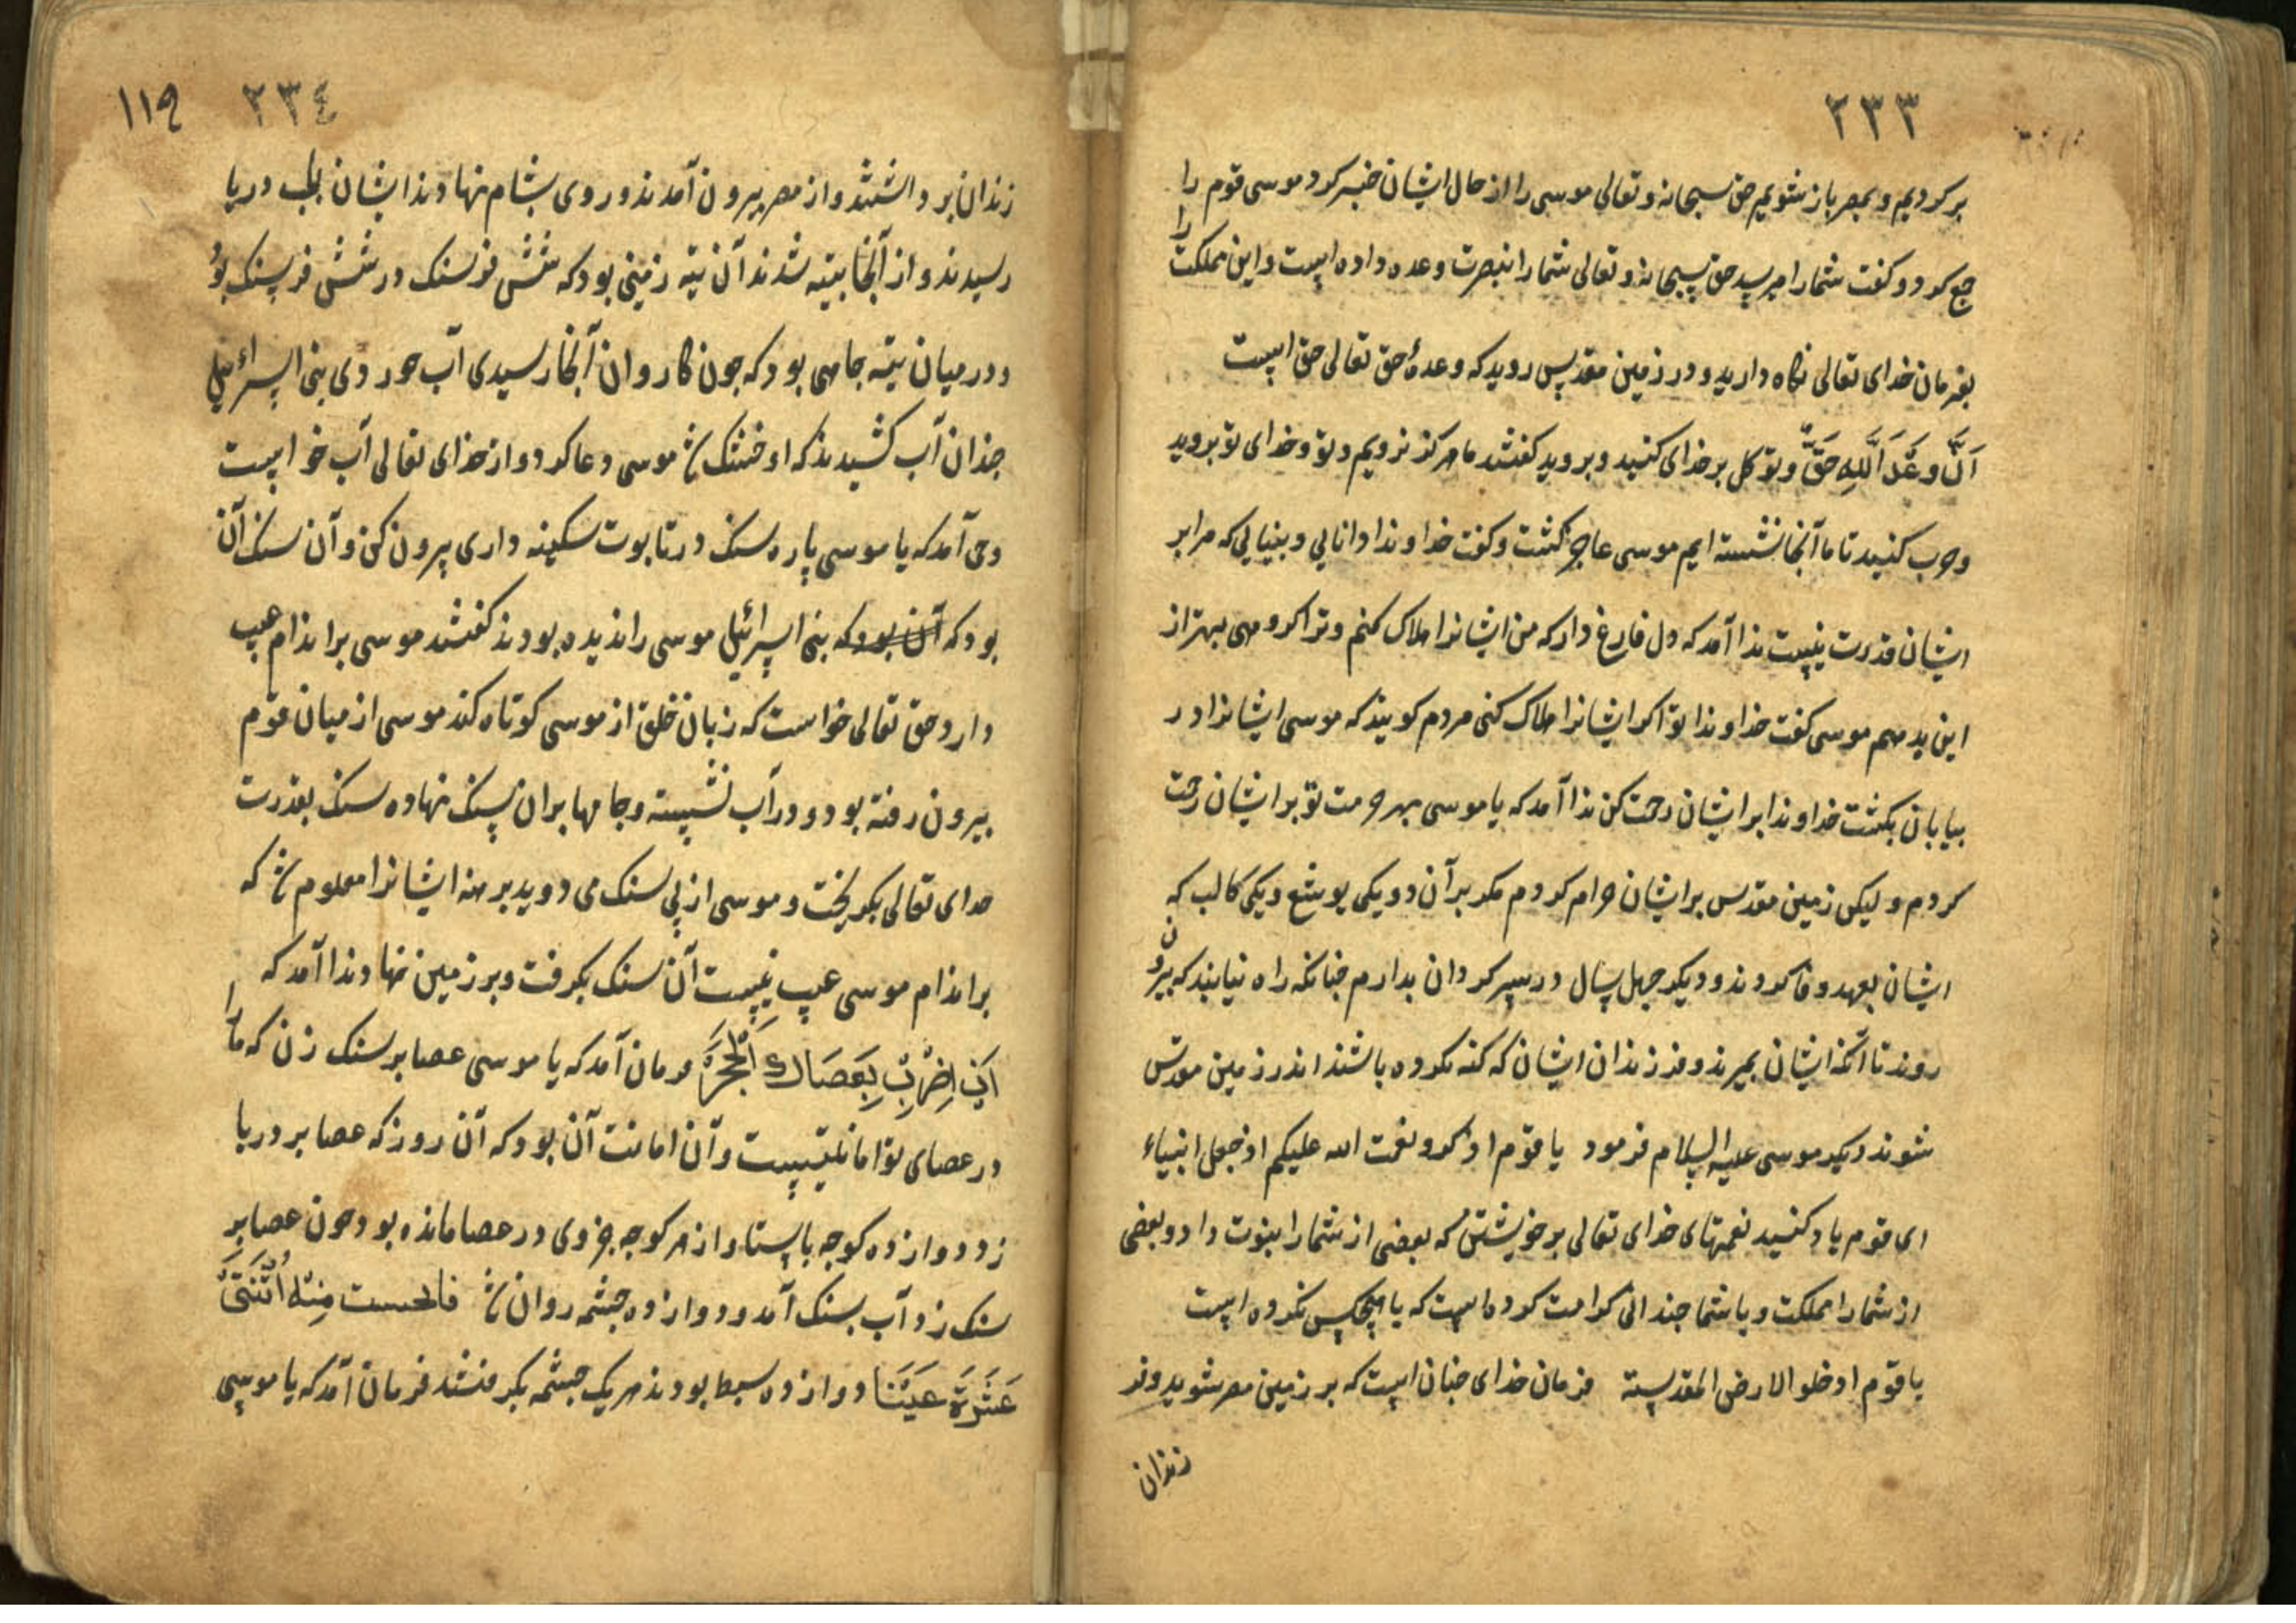 ٢٣٣
بركرديم و بمصر باز شويم حق سبحانه و تعالى موسى را از حال ايشان خبر كرد موسى قوم را
جمع كرد و كفت شمارا مپرسيد حق سبحانه و تعالى شمارا بنصرت وعده داده است و اين مملكت را
بفرمان خداى تعالى نكاه داريد و در زمين مقدس رويد كه وعدهٔ حق تعالى حق است
اَنَّ وَعْدَ اللّٰهِ حَقٌّ و توكل بر خداى كنيد و برويد كفتند ما هركز نرويم و تو و خداى تو برويد
و حرب كنيد تا ما آنجا نشسته ايم موسى عاجز كشت و كفت خداوندا دانايى و بينايى كه مرا بر
ايشان قدرت نيست ندا آمد كه دل فارغ دار كه من ايشانرا هلاك كنم و ترا كروهى بهتر از
اين بدهم موسى كفت خداوندا تو اكر ايشانرا هلاك كنى مردم كويند كه موسى ايشانرا در
بيابان بكشت خداوندا بر ايشان رحمت كن ندا آمد كه يا موسى بهر حرمت تو بر ايشان رحمت
كردم وليكن زمين مقدس بر ايشان حرام كردم مكر بر آن دو يكى يوشع و يكى كالب كه
ايشان بعهد وفا كردند و ديكر چهل سال در سركردان بدارم چنانكه راه نيابند كه بيرون
روند تا آنكه ايشان بميرند و فرزندان ايشان كه كنه نكرده باشند اندر زمين مقدس
شوند ديكر موسى عليه السلام فرمود يا قوم اذكرو نعمت الله عليكم اذ جعل انبياء
اى قوم ياد كنيد نعمتهاى خداى تعالى بر خويشتن كه بعضى از شمارا بنوت داد و بعضى
از شمارا مملكت و با شما چندانى كرامت كرده است كه با هيچكس نكرده است
يا قوم ادخلو الارض المقدسته فرمان خداى چنان است كه بر زمين مصر شويد و فر
زندان
١١٩ ٢٣٤
زندان برداشتند و از مصر بيرون آمدند و روى بشام نهادند ايشان بلب دريا
رسيدند و از آنجا بتيه شدند آن تيه زمينى بود كه شش فرسنك در شش فرسنك بود
و در ميان تيه چاهى بود كه چون كاروان آنجا رسيدى آب خوردى بنى اسرائيل
چندان آب كشيدند كه او خشك شد موسى دعا كرد و از خداى تعالى آب خواست
وحى آمد كه يا موسى پاره سنك در تابوت سكينه دارى بيرون كن و آن سنك آن
بود كه آن بود كه بنى اسرائيل موسى را نديده بودند كفتند موسى بر اندام عيب
دارد حق تعالى خواست كه زبان خلق از موسى كوتاه كند موسى از ميان قوم
بيرون رفته بود و در آب نشسته و جامها بر ان سنك نهاده سنك بقدرت
خداى تعالى بكريخت و موسى از پى سنك مى دويد برهنه ايشانرا معلوم شد كه
بر اندام موسى عيب نيست آن سنك بكرفت و بر زمين نهاد ندا آمد كه
اَنِ اضْرِبْ بِعَصَاكَ الْحَجَرَ فرمان آمد كه يا موسى عصا بر سنك زن كه ما را
در عصاى تو امانتيست و آن امانت آن بود كه آن روز كه عصا بر دريا
زد دوازده كوچه باستاد از هر كوچه جزوى در عصا مانده بود چون عصا بر
سنك زد آب بسنك آمد و دوازده چشمه روان شد فانبجست مِنْهُ اثْنَتَىْ
عَشْرَةَ عَيْنًا دوازده سبط بودند هر يك چشمه بكرفتند فرمان آمد كه يا موسى